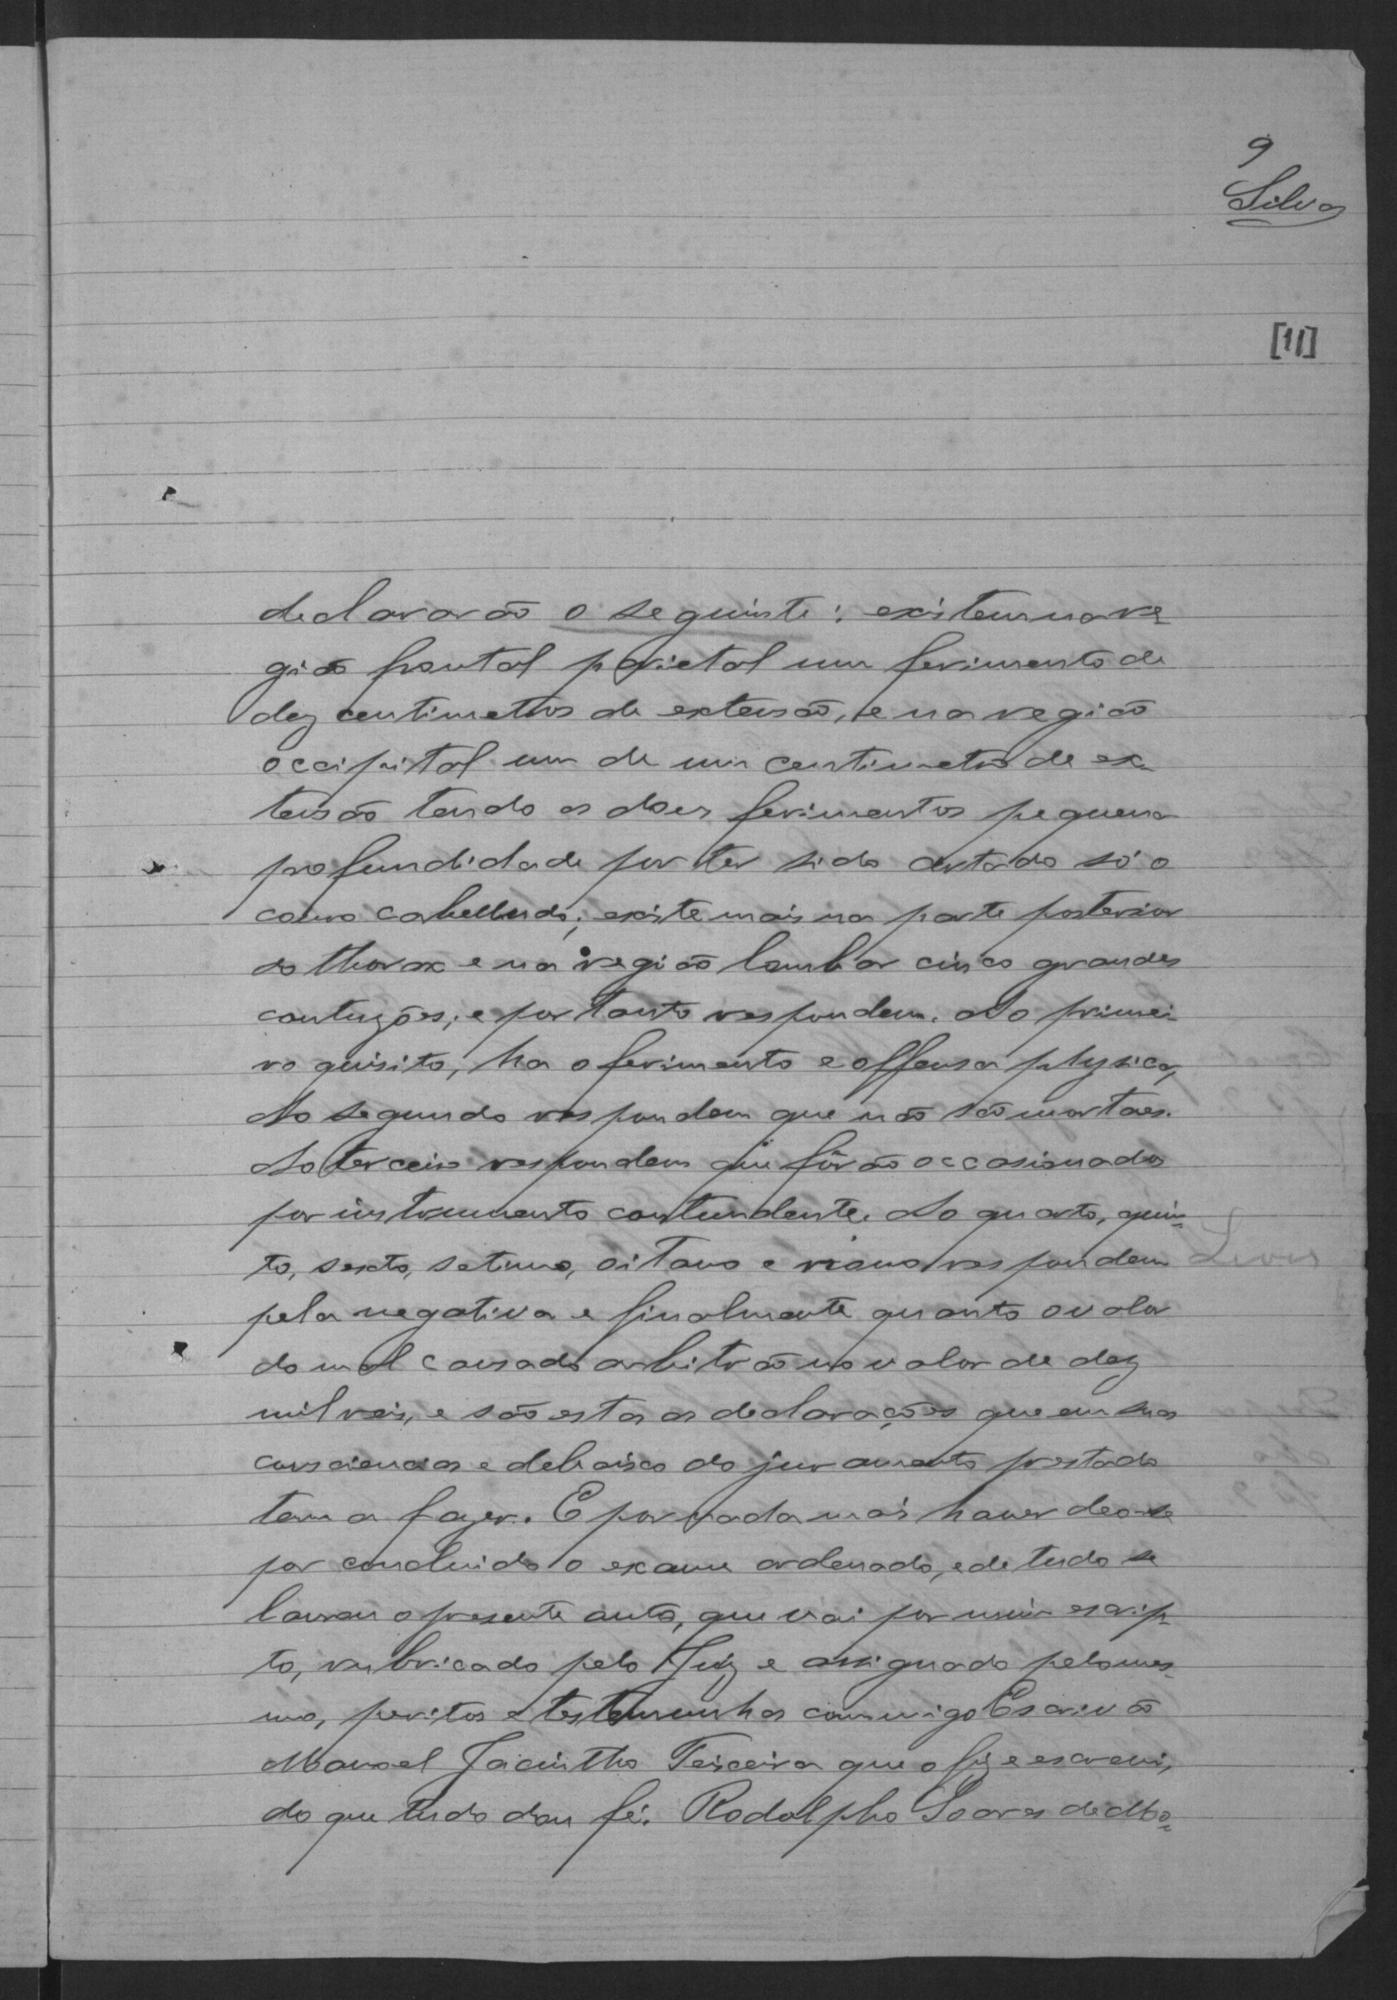 9
Silva
[11]
declararão o seguinte: existem na re
gião frontal parietal um ferimento de
dez centimetros de extensão, e na região
occipital um de um centimetro de ex-
tensão tendo os does ferimentos pequena
profundidade por ter sido cortado só o
couro cabelludo; existe mais na parte posterior
do thorax e na região lombar cinco grandes
contuzões; e por tanto respondem. Ao primei-
ro quisito, ha o ferimento e offensa physica,
Ao segundo respondem que não são mortaes.
Ao terceiro respondem que fôrão occasionados
por instrumento contundente. Ao quarto, quin-
to, sexto, setimo, oitavo e nono respondem
pela negativa e finalmente quanto o valor
do mal causado arbitrão no valor de dez
mil reis, e são estas as declarações que em suas
consciencias e debaixo do juramento prestado
tem a fazer. E por nada mais haver deo-se
por concluido o exame ordenado, e de tudo se
lavrou o presente auto, que vai por mim escrip-
to, rubricado pelo Juiz e assignado pelo mes-
mo, peritos e testemunhas commigo Escrivão
Manoel Jacintho Teixeira que o fiz e escrevi,
do que tudo dou fé. Rodolpho Soares de Mo-